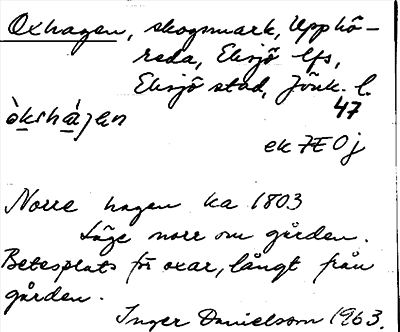 Oxhagen, skogsmark, Upphö-
reda, Eksjö lfs,
Eksjö stad, Jönk. l.
47
òkshàgen
ek 7E0j
Norre hagen ka 1803
Läge norr om gården.
Betesplats för oxar, långt från
gården.
Inger Danielsson 1963.